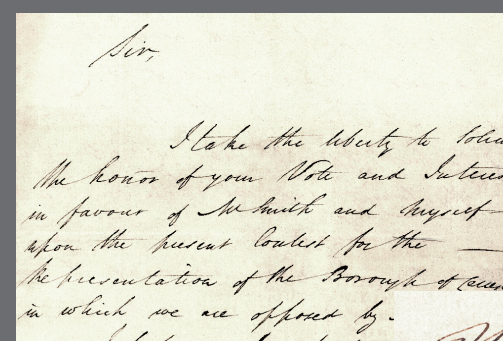 Sir,
I take the liberty to
the honor of your Vote and
in favour of Mr Smith and myself
upon the present Contest for the —
Representation of the Borough of
in which we are opposed by.